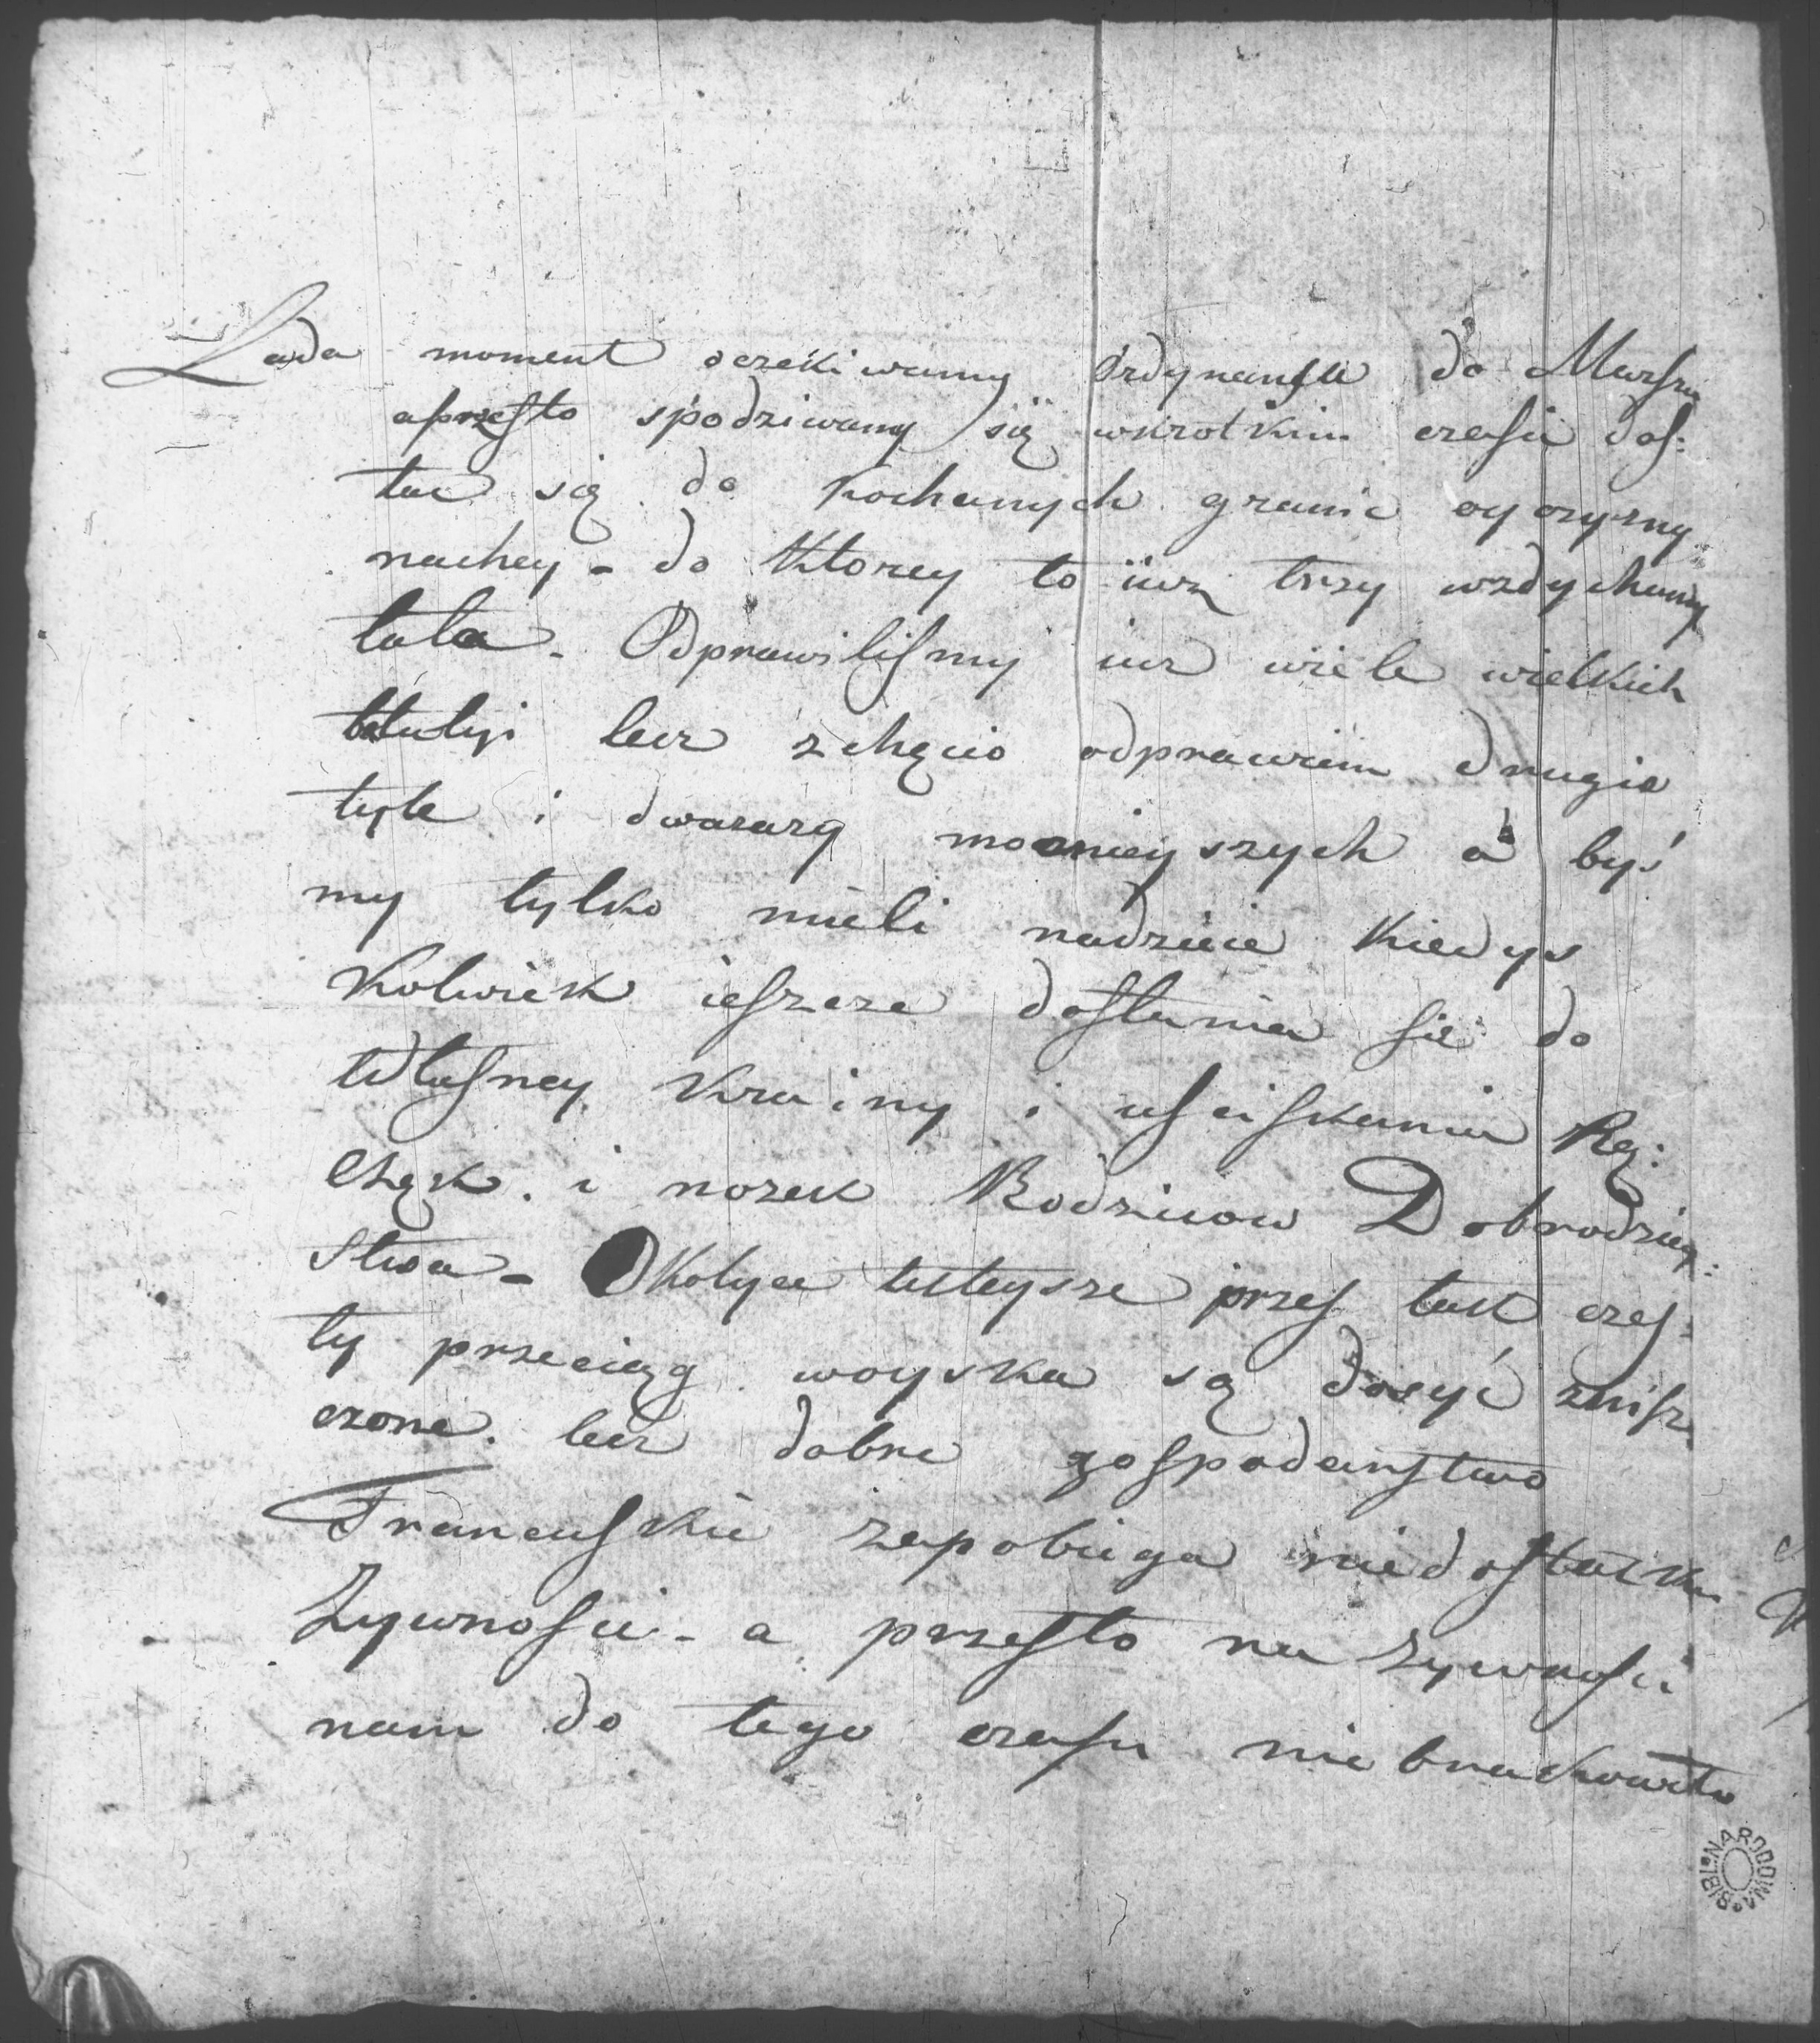 Lada moment oczekiwamy Ordynansu do Marszu
aprzesto spodziwamy się wkrotkim czasie dos:
tac się do kochanych granic oyczyzny
naszey - do Ktorey to iuz trzy wzdychamy
lata - Odprawilismy iuz wiele wielkich
batalyi lecz zchęcio odprawiem drugie
tyle i dwarazy mocnieyszych a byś
my tylko mieli nadzieie kiedys
kolwiek ieszcze dostania sie do
własney krainy i usciskania Rą:
cząk i nozek Rodzicow Dobrodziey:
stwa - Okolyce tuteysze przes tak czes:
ty przeciąg woyska są dosyć znisz
czone. lecz dobre gospodarstwo
Francuskie zapobiega niedostatku
Zywnosci - a przesto na Zywnosci
nam do tego czasu nie brakowało
BIBL. NARODOWA